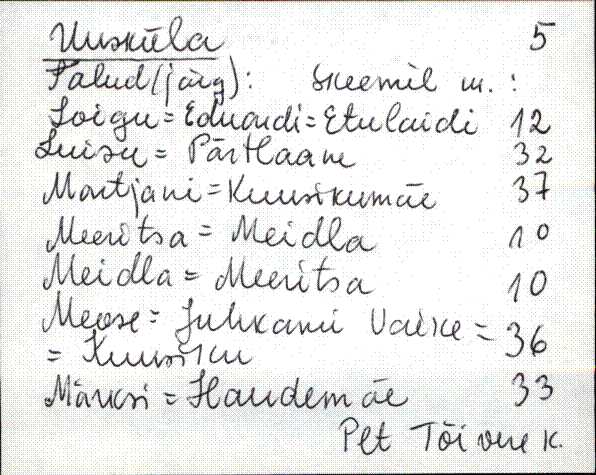 Uusküla 5
Talud (järg): skeemil m. :
Loigu = Eduardi = Etulaidi 12
Luisu = Pärtlaane 32
Martjani = Kuusikumäe 37
Meeritsa = Meidla 10
Meidla = Meeritsa 10
Meose = Juhkami Väike = 36
= Kuusiku
Märksi = Haudemäe 33
Plt Tõivere k.